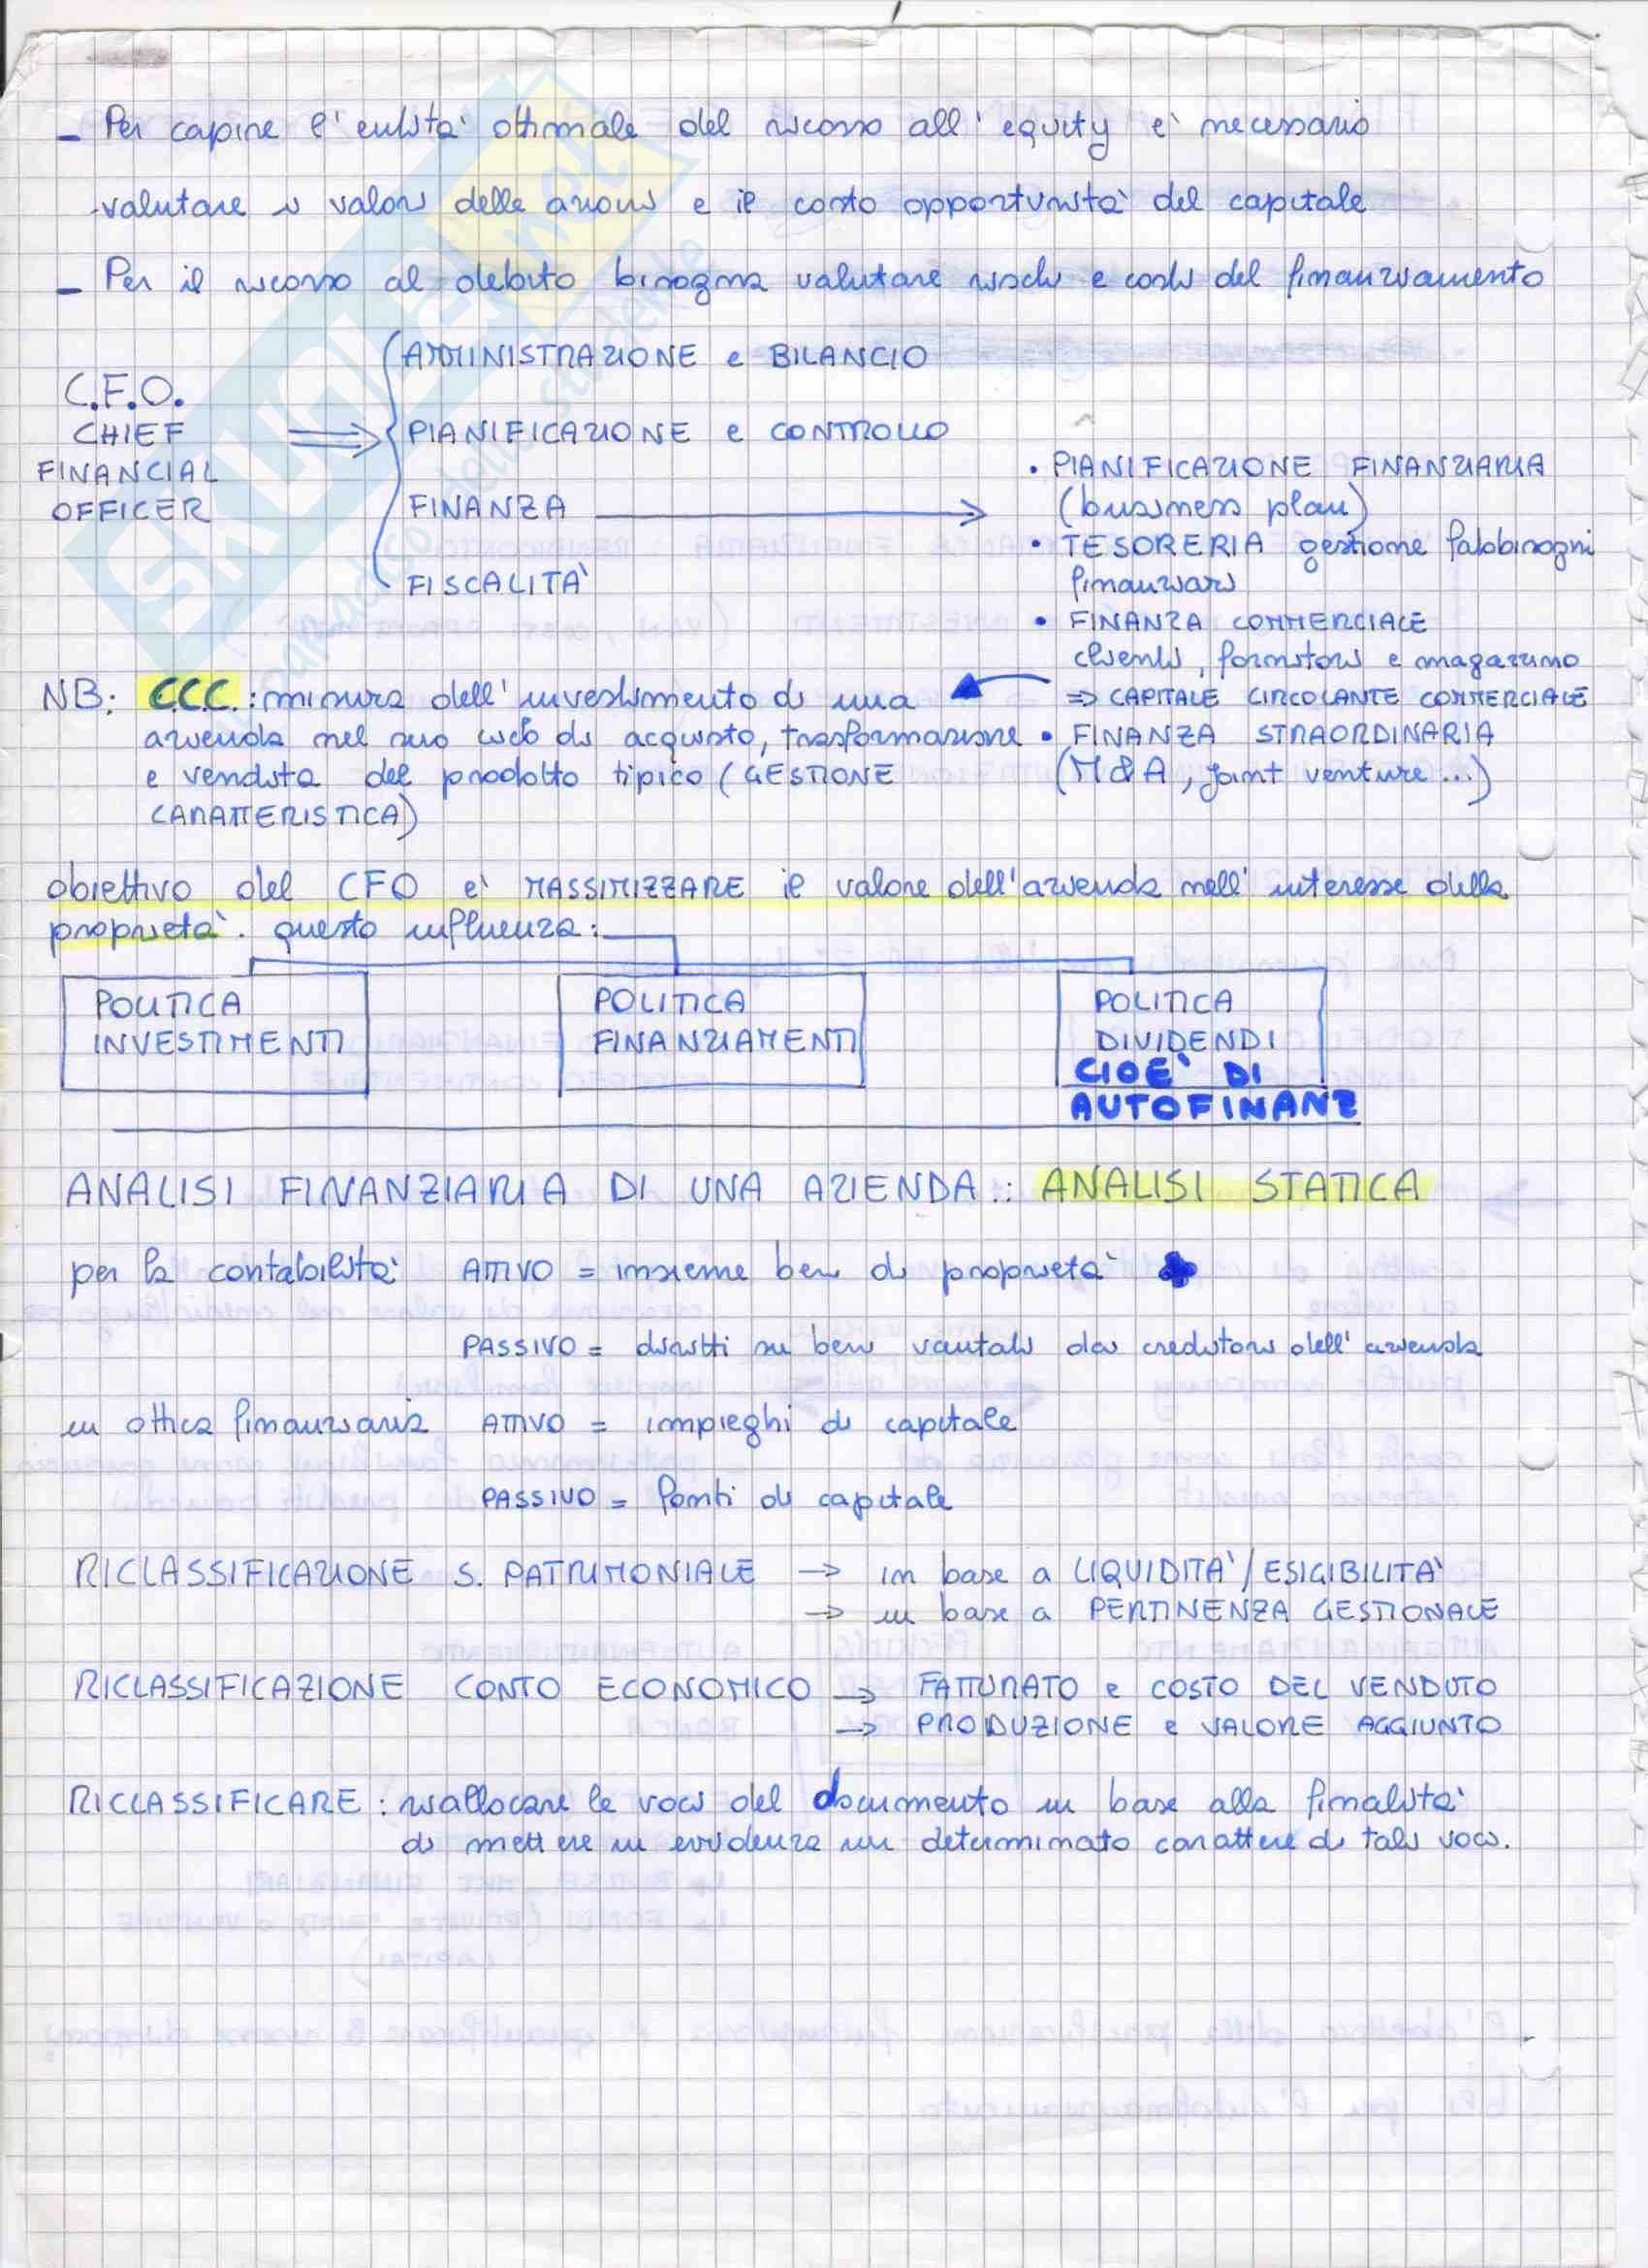 - Per capire l'entità ottimale del ricorso all'equity è necessario
valutare i valori delle azioni e il costo opportunità del capitale
- Per il ricorso al debito bisogna valutare rischi e costi del finanziamento
C.F.O.
CHIEF
FINANCIAL
OFFICER
AMMINISTRAZIONE e BILANCIO
PIANIFICAZIONE e CONTROLLO
FINANZA
FISCALITÀ
• PIANIFICAZIONE FINANZIARIA
(bussiness plan)
• TESORERIA gestione fabbisogni
finanziari
• FINANZA COMMERCIALE
clienti, fornitori e magazzino
⇒ CAPITALE CIRCOLANTE COMMERCIALE
• FINANZA STRAORDINARIA
(M&A, joint venture...)
NB: C.C.C.: misura dell'investimento di una
azienda nel suo ciclo di acquisto, trasformazione
e vendita del prodotto tipico (GESTIONE
CARATTERISTICA)
obiettivo del CFO è MASSIMIZZARE il valore dell'azienda nell'interesse della
proprietà. questo influenza:
POLITICA
INVESTIMENTI
POLITICA
FINANZIAMENTI
POLITICA
DIVIDENDI
CIOÈ DI
AUTOFINANZ
ANALISI FINANZIARIA DI UNA AZIENDA: ANALISI STATICA
per la contabilità ATTIVO = insieme beni di proprietà
PASSIVO = diritti su beni vantati dai creditori dell'azienda
in ottica finanziaria ATTIVO = impieghi di capitale
PASSIVO = fonti di capitale
RICLASSIFICAZIONE S. PATRIMONIALE → in base a LIQUIDITÀ/ESIGIBILITÀ
→ in base a PERTINENZA GESTIONALE
RICLASSIFICAZIONE CONTO ECONOMICO → FATTURATO e COSTO DEL VENDUTO
→ PRODUZIONE e VALORE AGGIUNTO
RICLASSIFICARE: riallocare le voci del documento in base alla finalità
di mettere in evidenza un determinato carattere di tali voci.